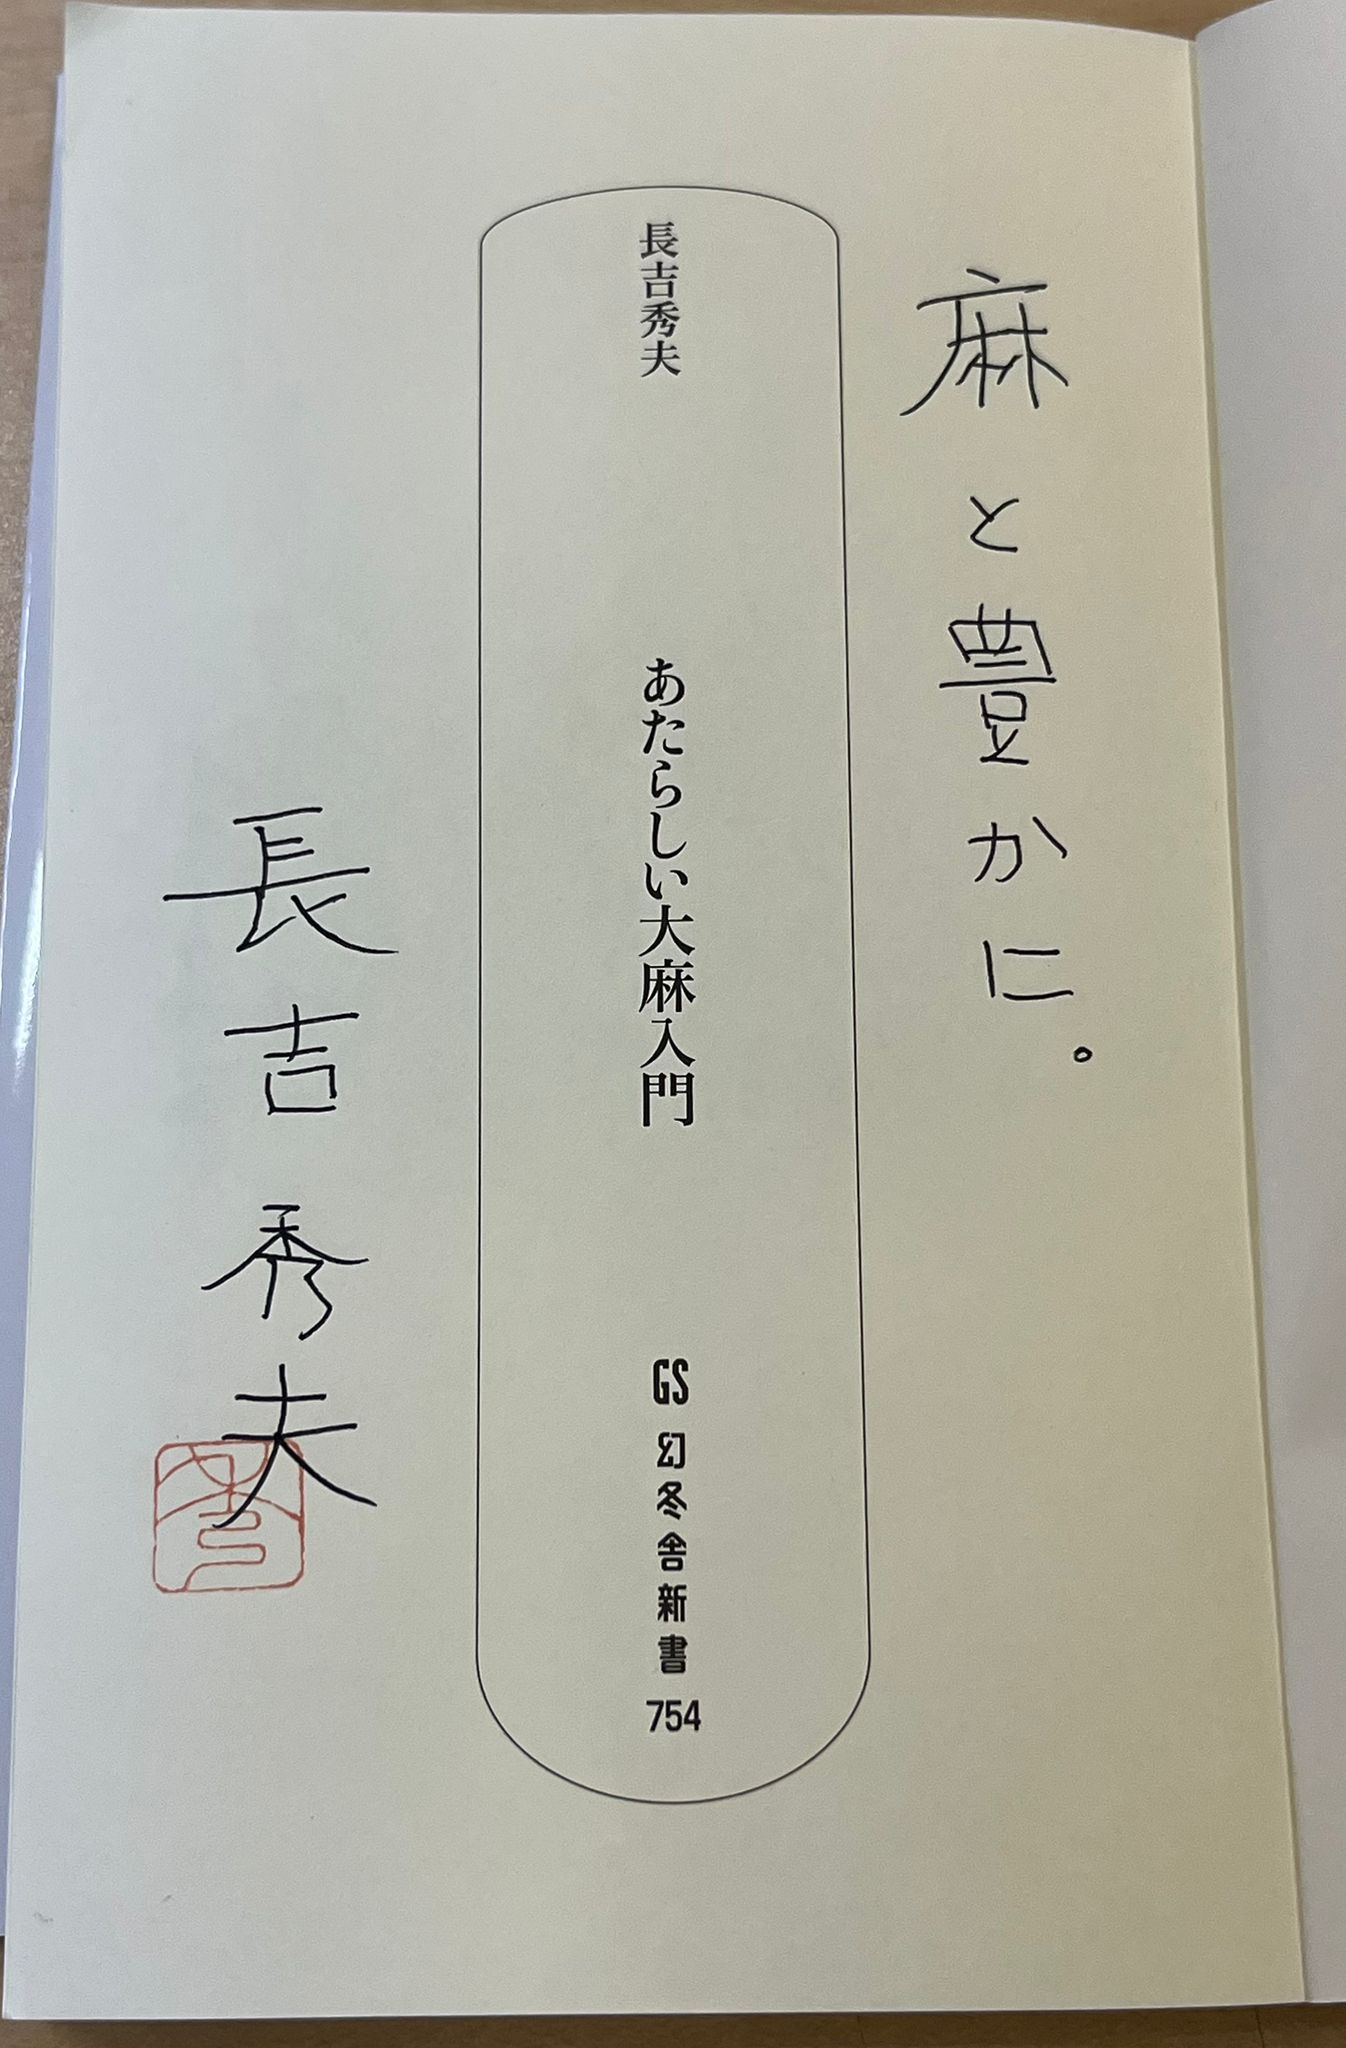 麻と豊かに。
長吉秀夫
あたらしい大麻入門
GS 幻冬舎新書
754
長吉秀夫
秀